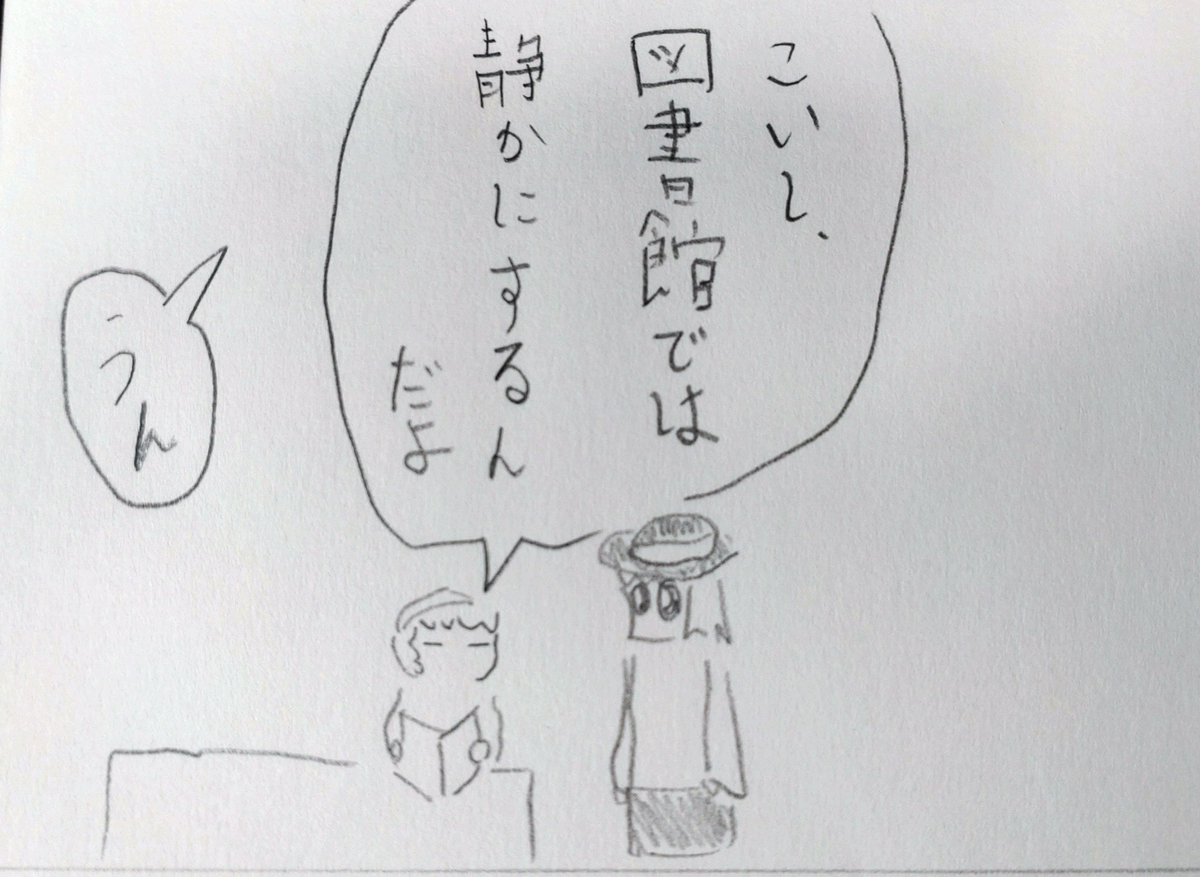 こいし、
図書館では
静かにするん
だよ
うん